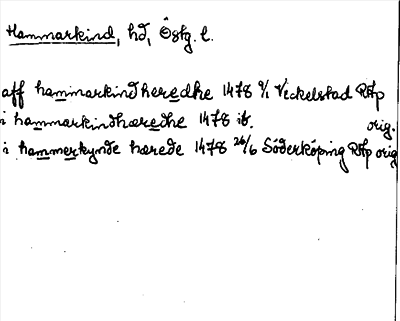 Hammarkind, hd, Östg. l.
aff hammarkindheredhe 1478 9/1 Veckelstad RAp
i hammarkindhæredhe 1478 ib. orig.
i hammerkynde hærede 1478 26/6 Söderköping RAp orig